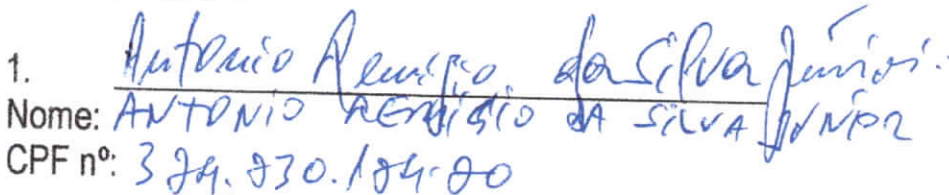 1. Antonio Remigio da Silva Júnior.
Nome: ANTONIO REMIGIO DA SILVA JUNIOR
CPF nº: